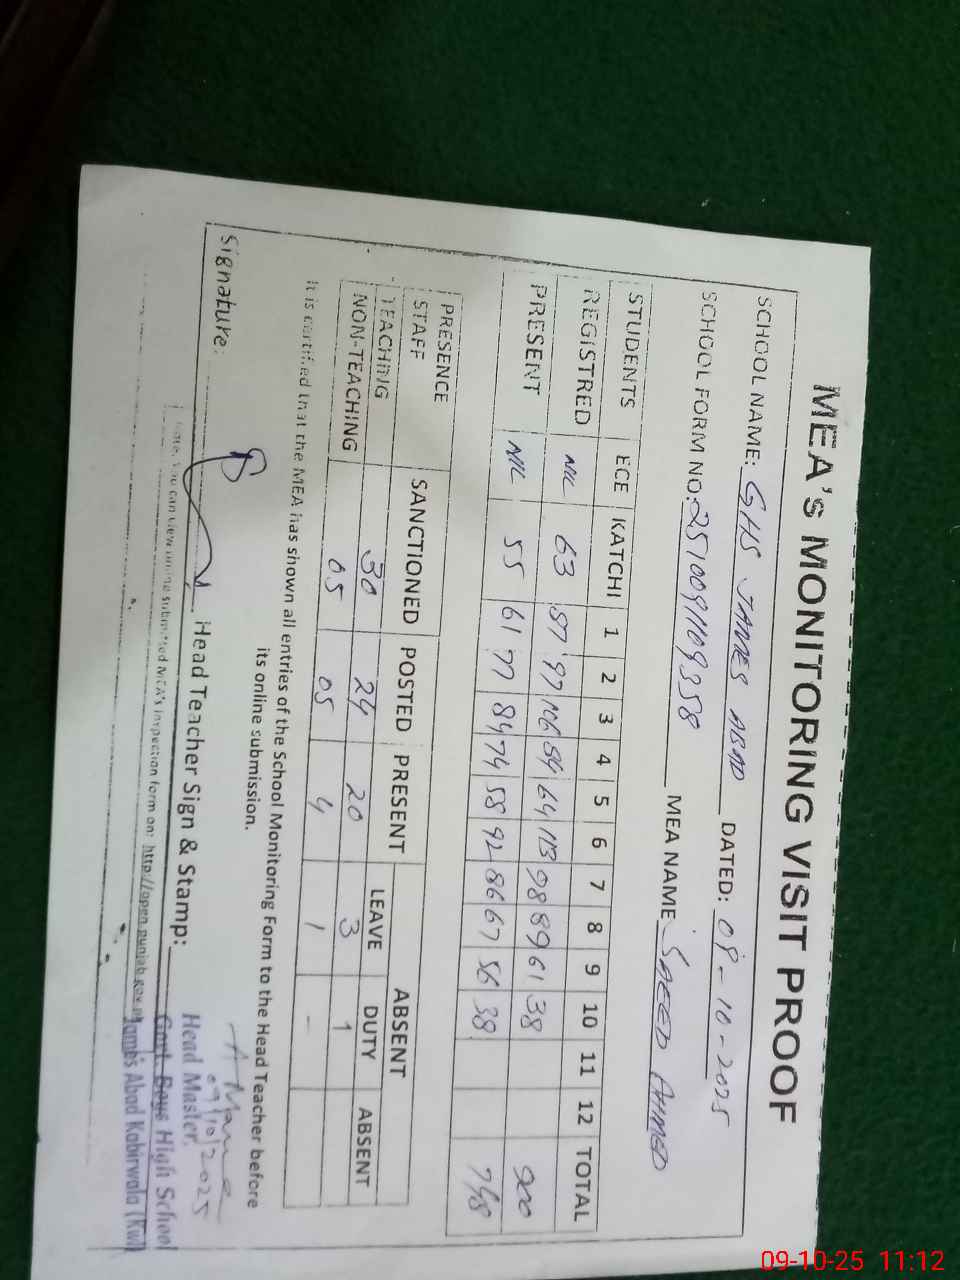 MEA's MONITORING VISIT PROOF
SCHOOL NAME: GHS JAMES ABAD DATED: 09-10-2025
SCHOOL FORM NO: 2510091109358 MEA NAME SAEED AHMED
STUDENTS ECE KATCHI 1 2 3 4 5 6 7 8 9 10 11 12 TOTAL
REGISTRED NIL 63 87 97 106 84 64 113 98 89 61 38 900
PRESENT NIL 55 61 77 84 74 58 92 86 67 56 38 748
PRESENCE SANCTIONED POSTED PRESENT ABSENT
STAFF LEAVE DUTY ABSENT
TEACHING 30 24 20 3 1
NON-TEACHING 05 05 4 1 -
It is certified that the MEA has shown all entries of the School Monitoring Form to the Head Teacher before
its online submission.
Signature: Head Teacher Sign & Stamp:
09/10/2025
Head Master.
Govt. Boys High School
James Abad Kabirwala (Kwl
Note. You can view online submitted MEA's inspection form on: http://open.punjab.gov.pk
09-10-25 11:12